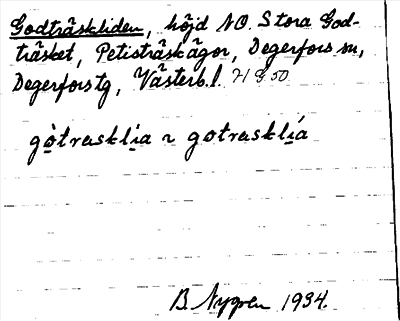 Godträskliden, höjd NO. Stora God-
träsket, Petisträskägor, Degerfors sn,
Degerforstg, Västerb.l. 21 G 50
gòtrasklı̣a ~ gotrasklı̣́a
B. Nygren 1934.